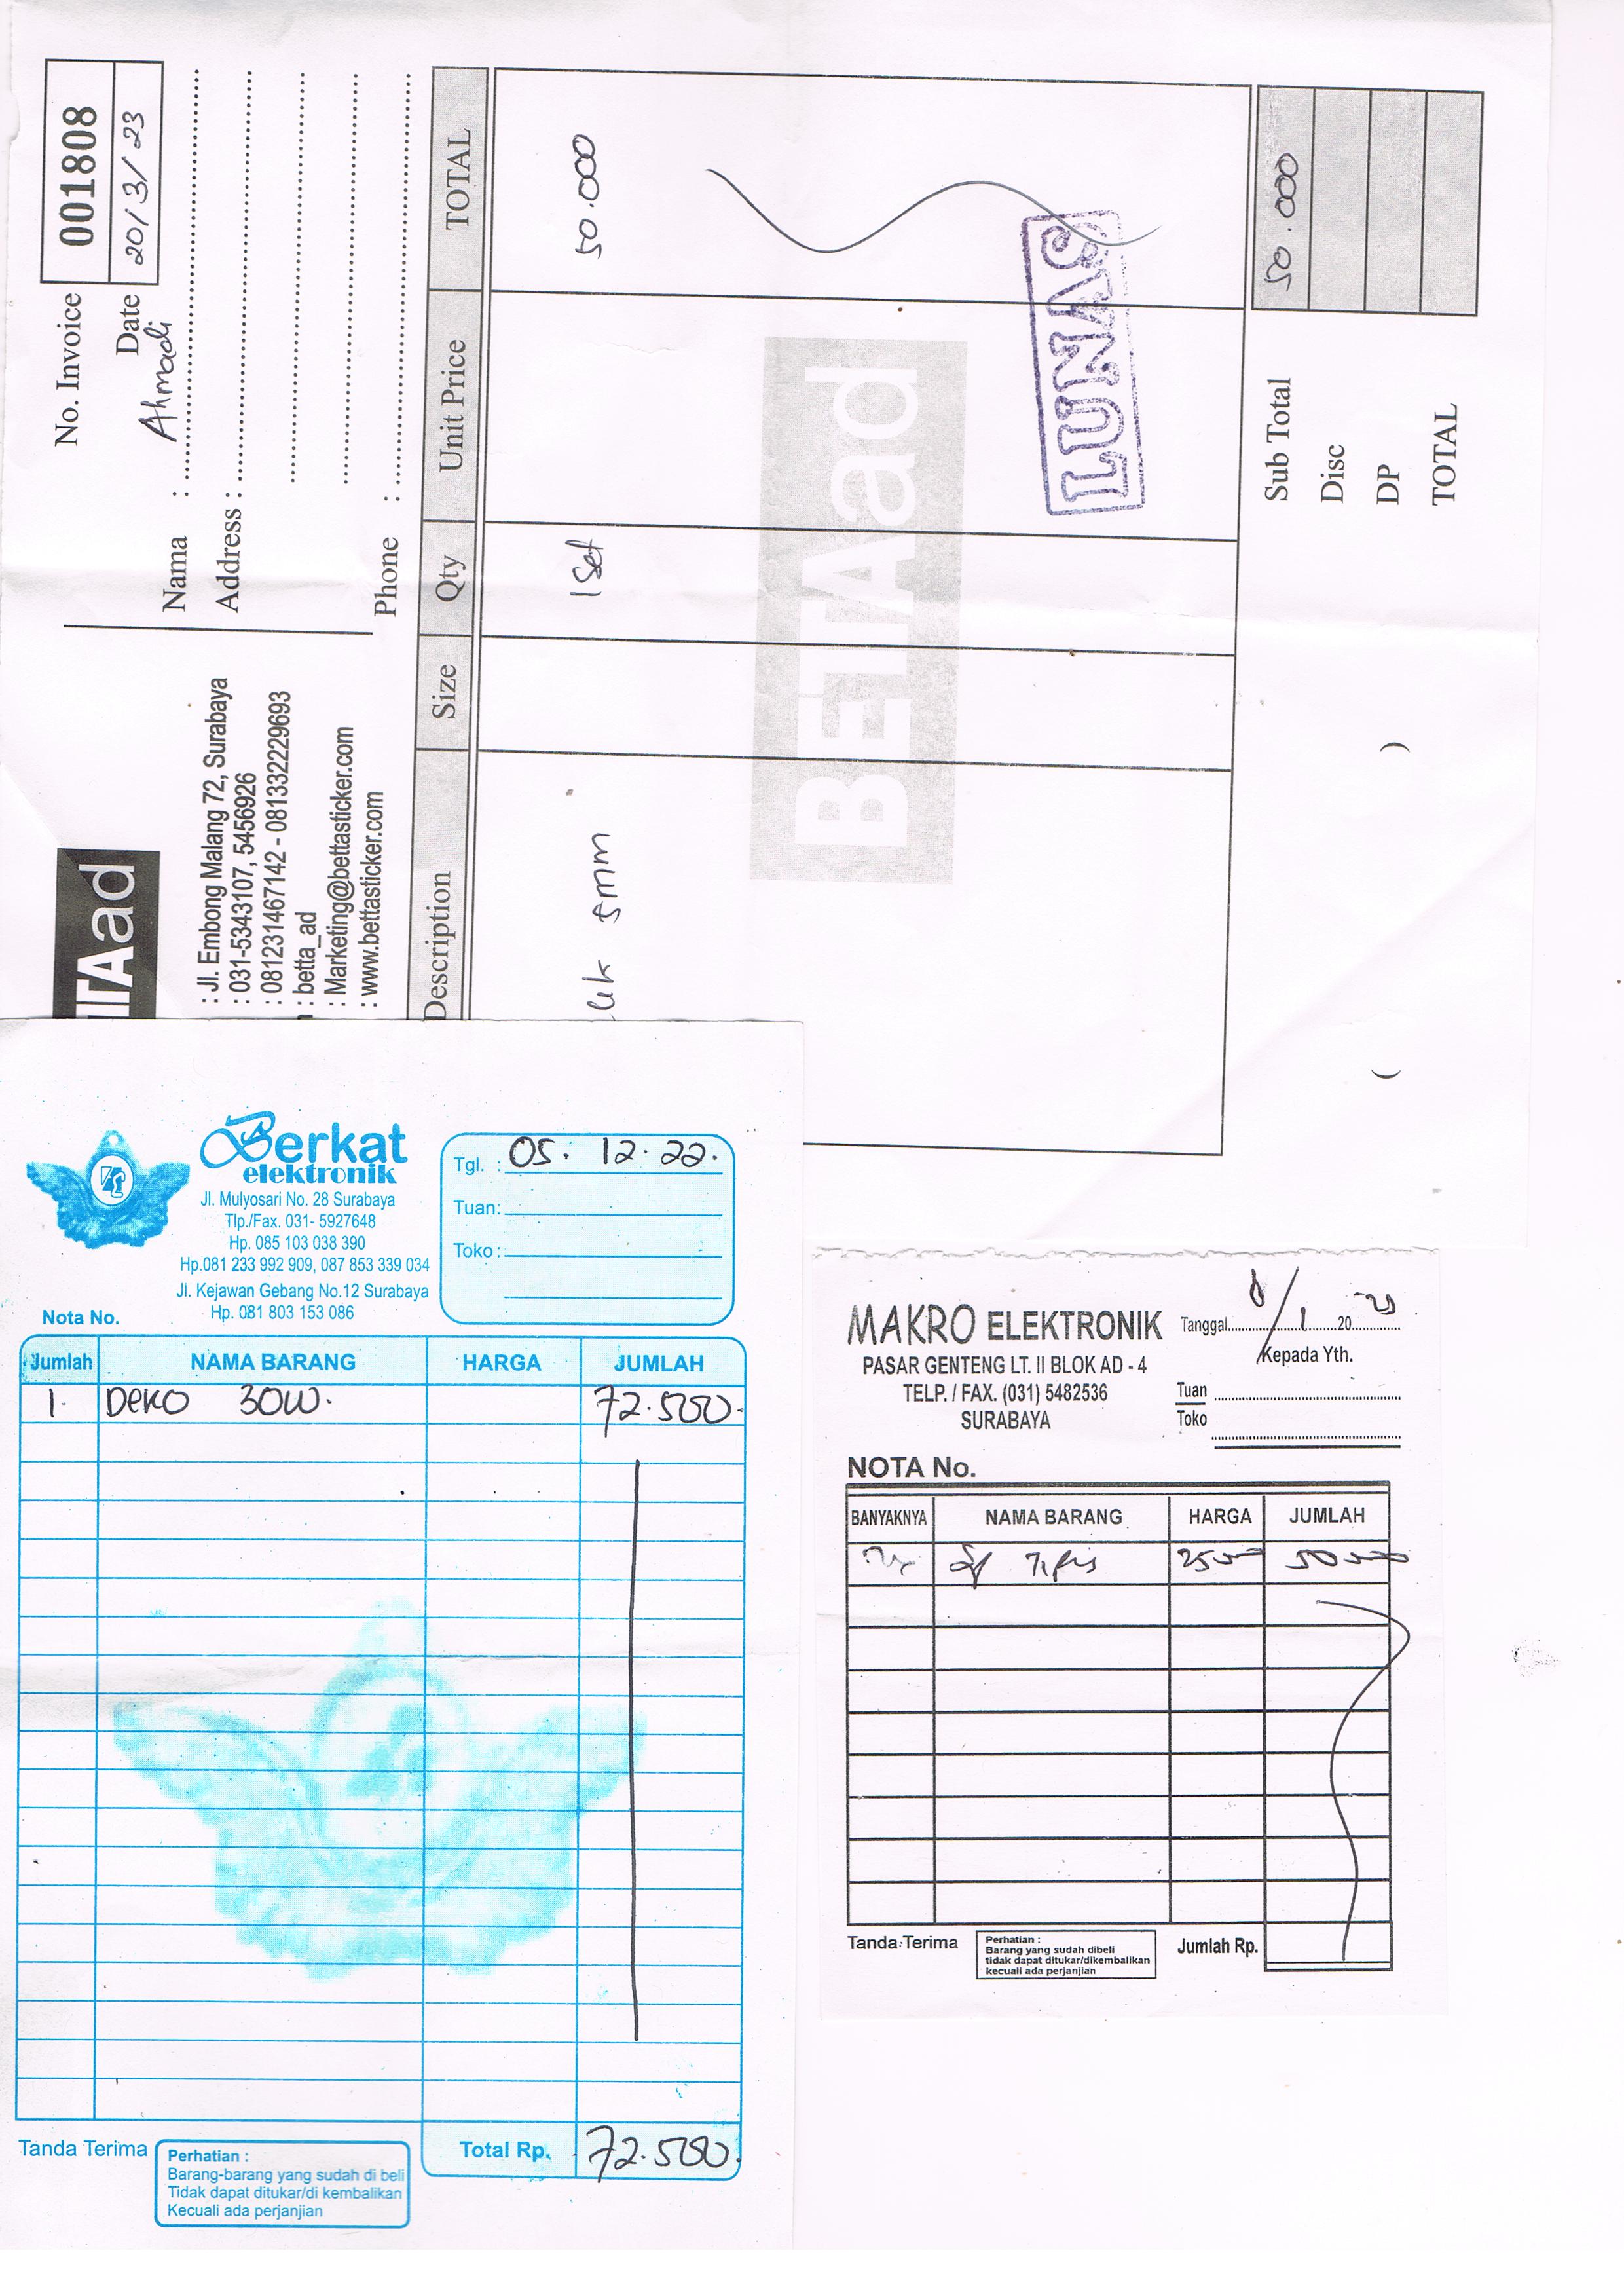 No. Invoice 001808
Date 20/3/23
Nama : Ahmadi
Address :
Phone :
TAad
: Jl. Embong Malang 72, Surabaya
: 031-5343107, 5456926
: 081231467142 - 081332229693
: betta_ad
: Marketing@bettasticker.com
: www.bettasticker.com
Description Size Qty Unit Price TOTAL
5mm 1 Set 50.000
BETAad
LUNAS
Sub Total 50.000
Disc
DP
TOTAL
( )
Berkat
elektronik
Jl. Mulyosari No. 28 Surabaya
Tlp./Fax. 031- 5927648
Hp. 085 103 038 390
Hp.081 233 992 909, 087 853 339 034
Jl. Kejawan Gebang No.12 Surabaya
Hp. 081 803 153 086
Tgl. : 05. 12. 22.
Tuan:
Toko :
Nota No.
Jumlah NAMA BARANG HARGA JUMLAH
1. Deko 30W. 72.500.
Total Rp. 72.500.
Tanda Terima
Perhatian :
Barang-barang yang sudah di beli
Tidak dapat ditukar/di kembalikan
Kecuali ada perjanjian
MAKRO ELEKTRONIK
PASAR GENTENG LT. II BLOK AD - 4
TELP. / FAX. (031) 5482536
SURABAYA
Tanggal 1 20
Kepada Yth.
Tuan
Toko
NOTA No.
BANYAKNYA NAMA BARANG HARGA JUMLAH
Tanda Terima
Perhatian :
Barang yang sudah dibeli
tidak dapat ditukar/dikembalikan
kecuali ada perjanjian
Jumlah Rp.